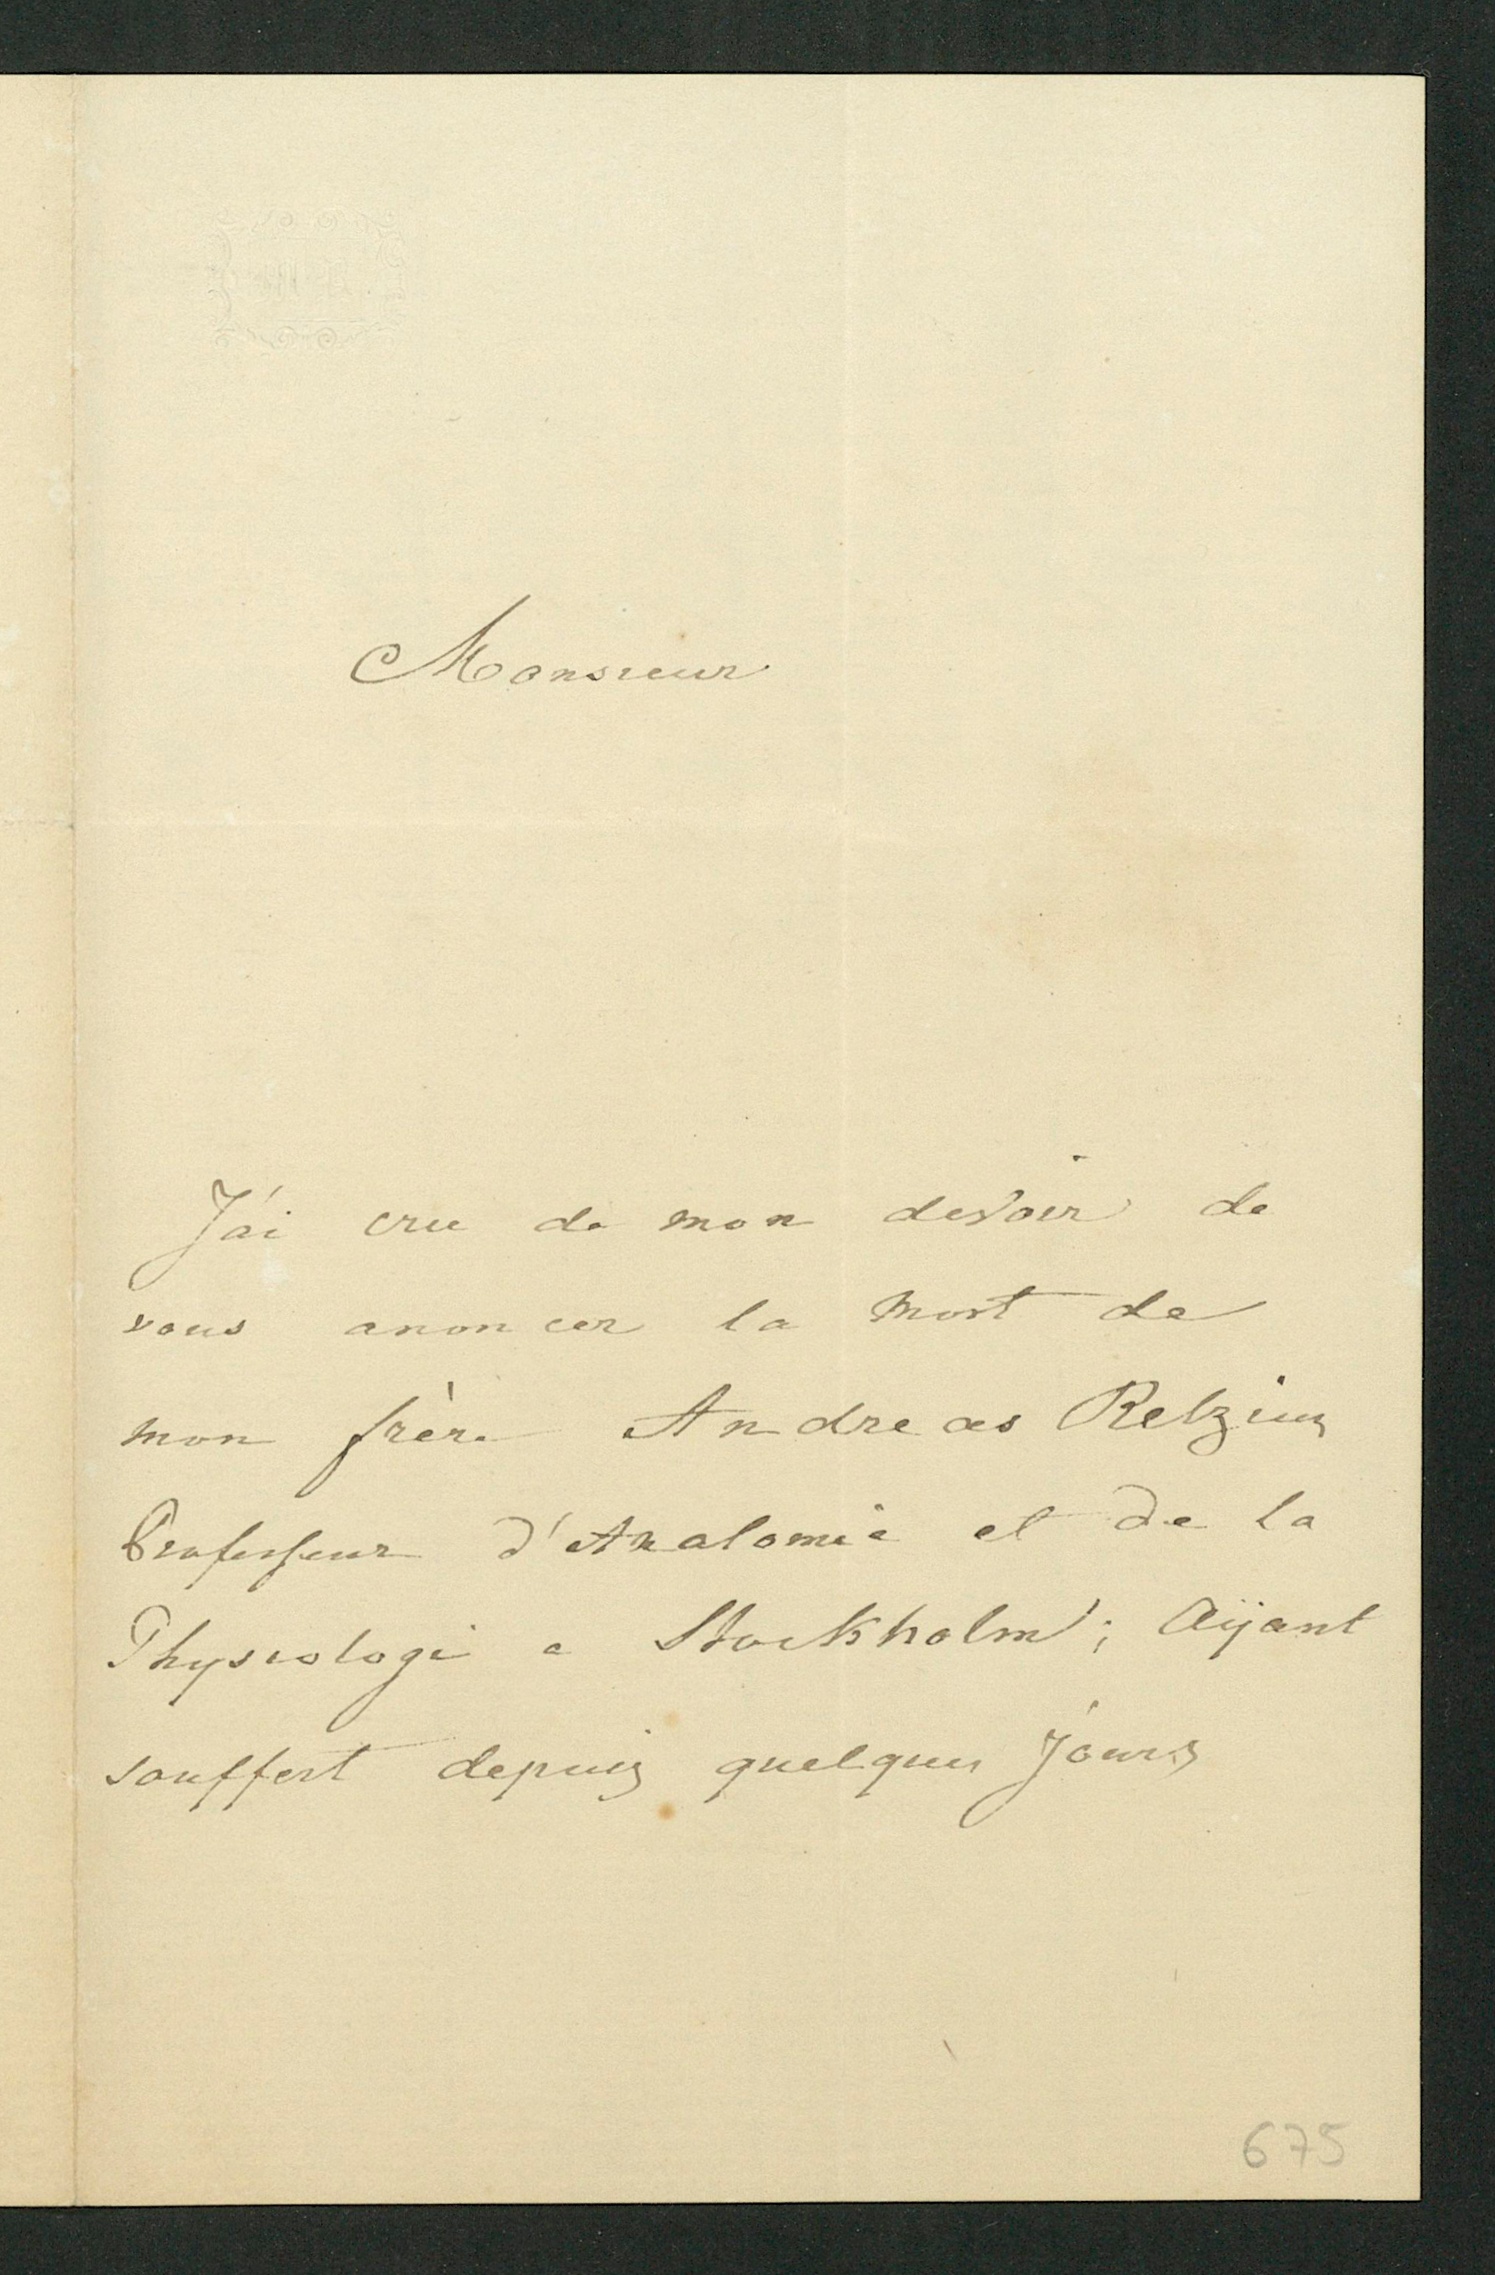 Monsieur
J'ai cru de mon devoir de
vous anoncer la mort de
mon frère Andreas Retzius
Professeur d'Anatomie et de la
Physiologi a Stockholm; Aÿant
souffert depuis quelques jours
675